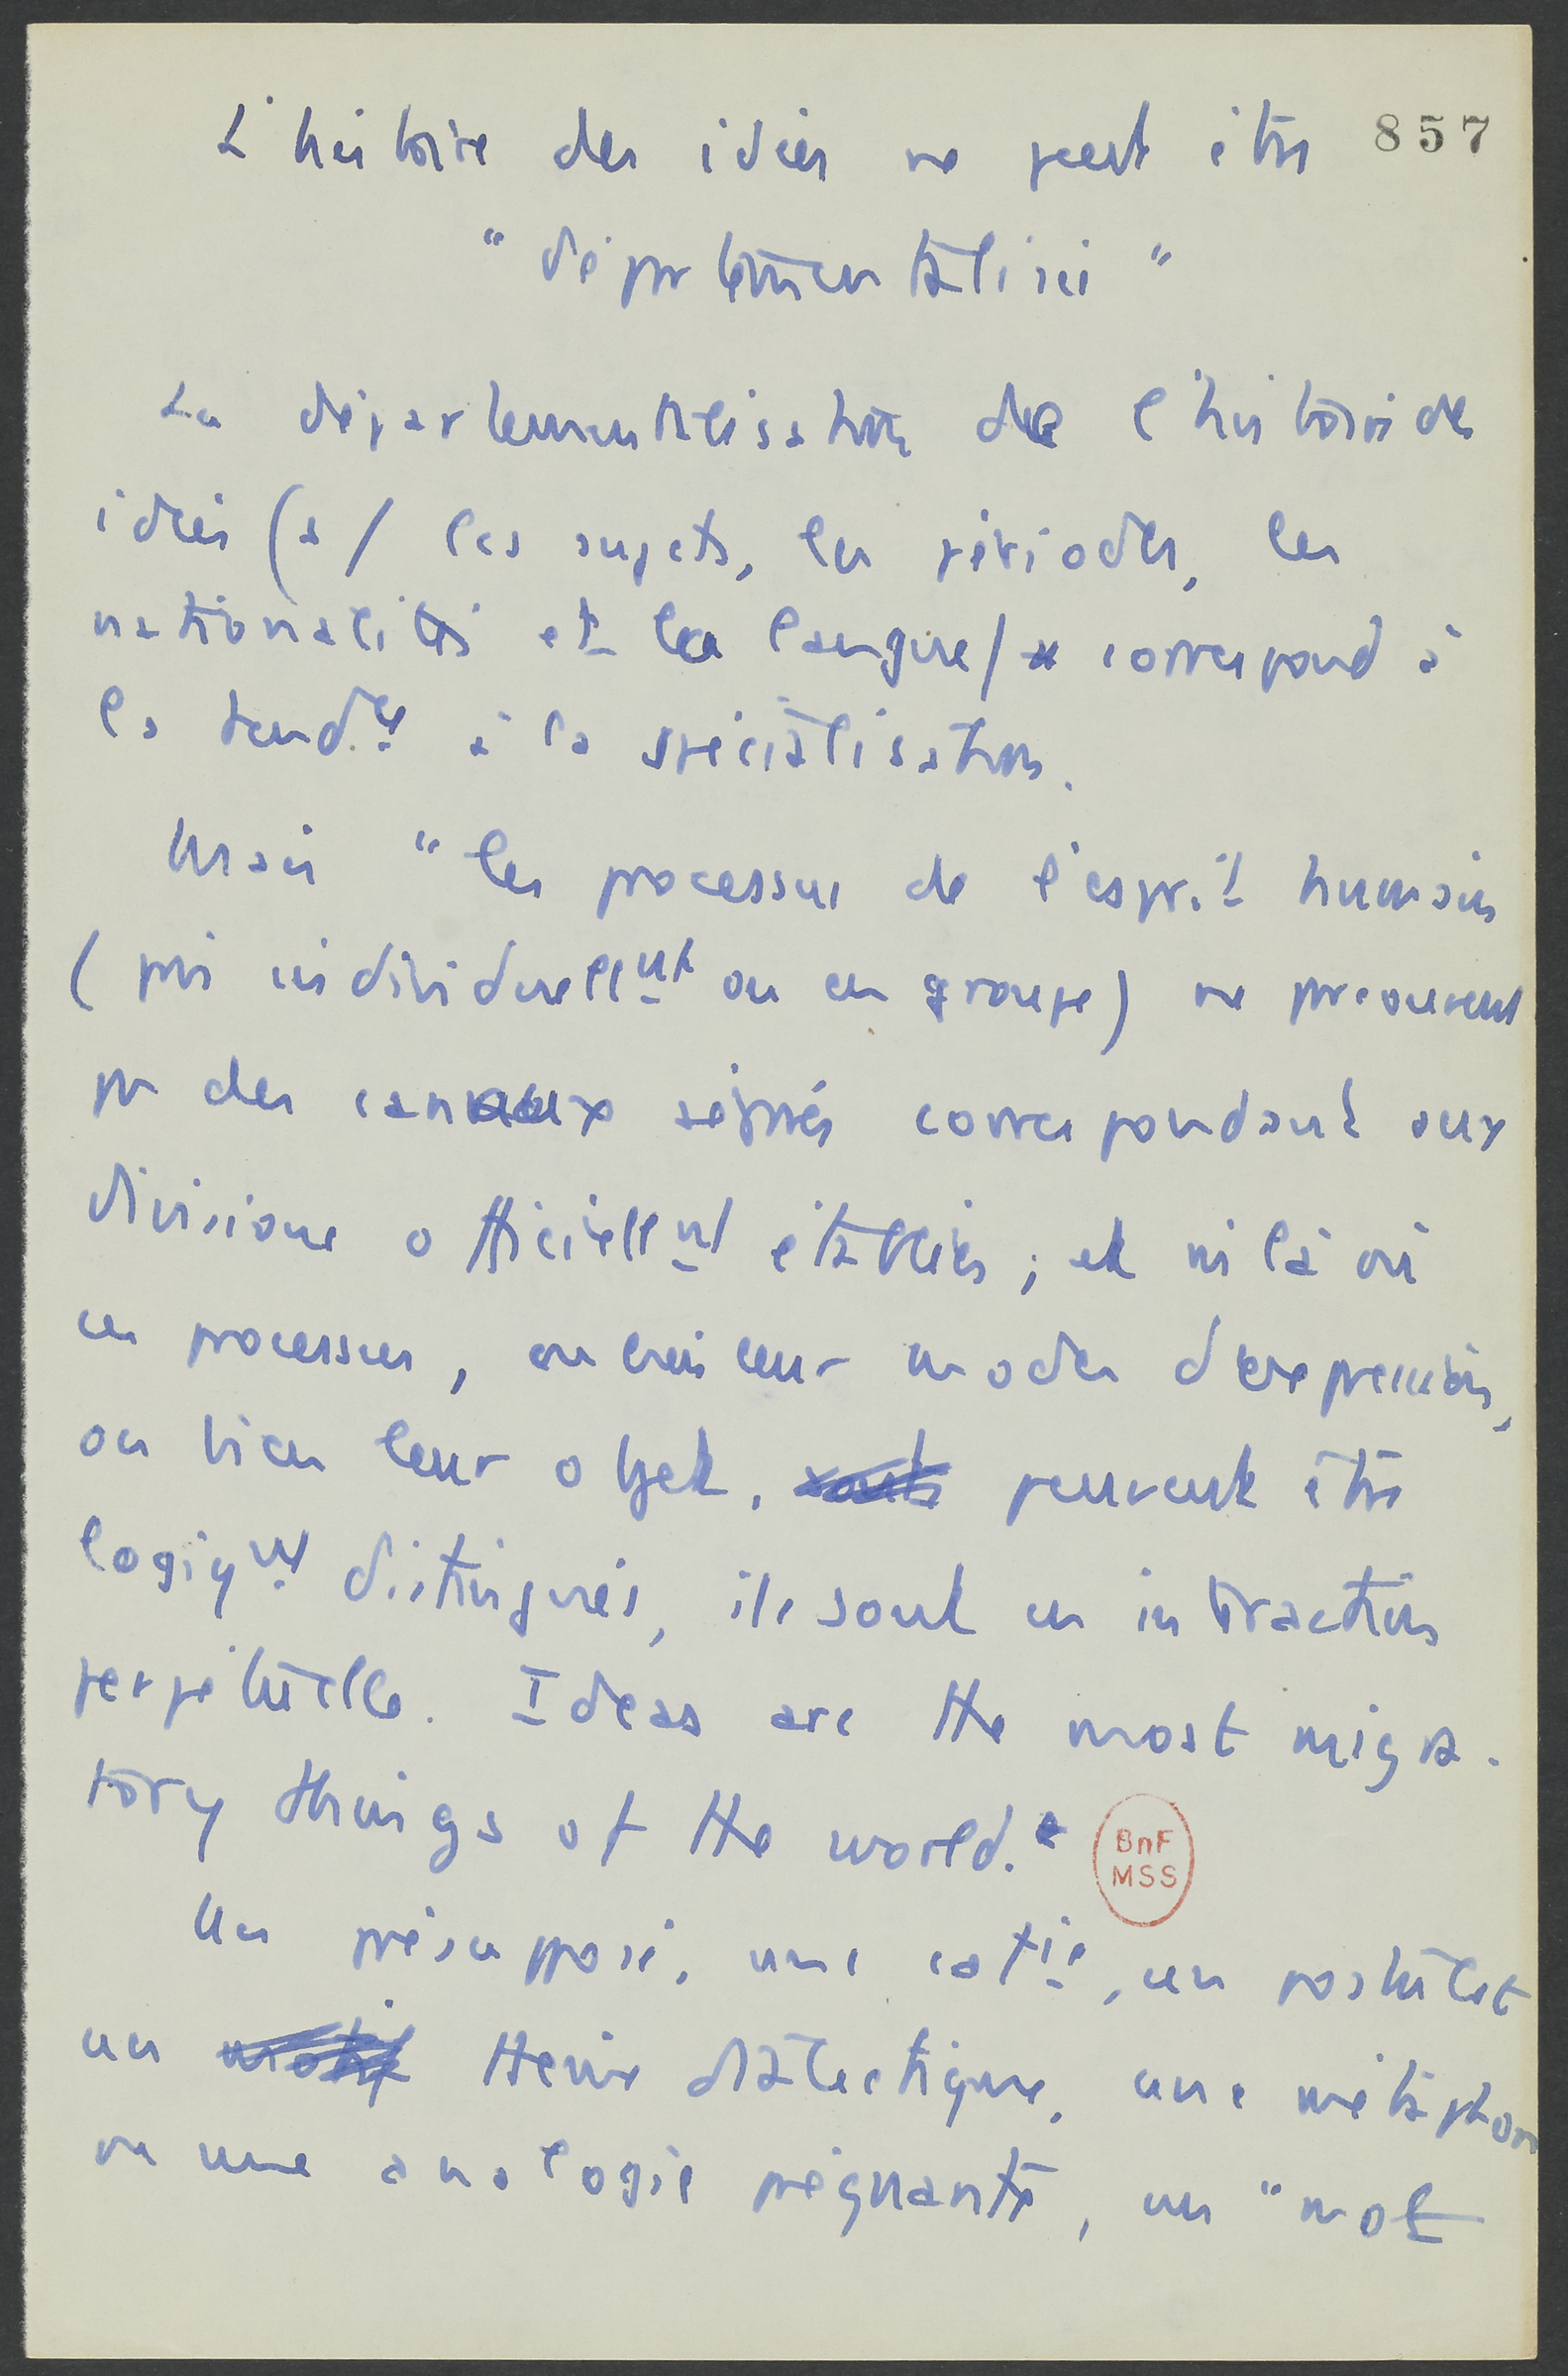 L'histoire des idées ne peut être 857
"départementalisée"
La départementalisation de l'histoire des
idées (s/ les sujets, les périodes, les
nationalités et les langues) correspond à
la tendce à la spécialisation.
Mais "les processus de l'esprit humain
(pris individuellnt ou en groupe) ne se
pr des canaux séprés correspondant aux
divisions officiellnt établies ; et là où
ces processus, ou bien leur modes d'expression,
ou bien leur objet, peuvent être
logiqnt distingués, ils sont en interaction
perpétuelle. Ideas are the most migra-
tory things of the world."
BnF
MSS
Un présupposé, une catie, un postulat
un thème dialectique, une métaphore
ou une analogie prégnante, un "mot